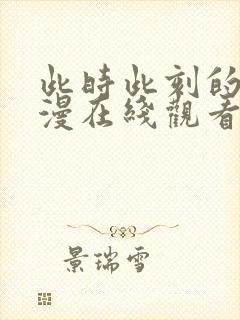 此時此刻的
漫在綫觀看
景瑞雪